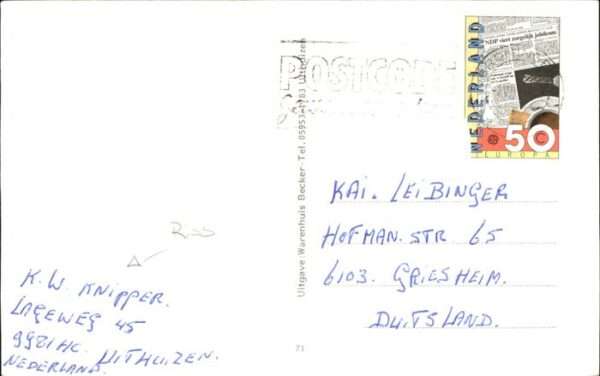 NDP viert zorgelijk jubileum
NEDERLAND
50
EUROPA
POSTCODE
Uitgave: Warenhuis Becker - Tel. 05953-1783 Uithuizen
KAI. LEIBINGER
HOFMAN. STR 65
6103. GRIESHEIM.
DUITSLAND.
K.W. KNIPPER.
LAGEWEG 45
9981HC. UITHUIZEN.
NEDERLAND.
71